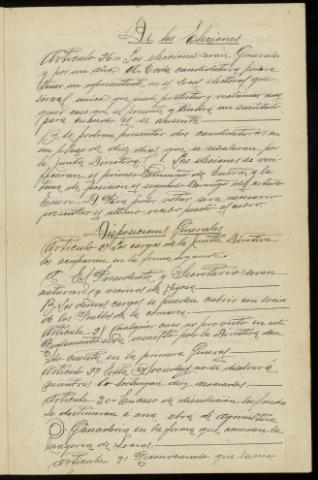 De las Elecciones
Artículo 26 = Las elecciones serán Generales
y por un año A. Cada candidatura podrá
tener un representante en el local electoral que
será el único que puede protestar y reclamar en
caso que el presente nombra un sustituto
para durante el se ausente
B. se podrán presentar dos candidaturas en
un plazo de diez días que se señalaran por
la Junta Directiva C. Las elecciones se veri-
ficaran el primer Domingo de Enero y la
toma de posesion el segundo Domingo del
Enero D Para poder votar será necesario
presentar el ultimo recibo puesto al cobro.
Disposiciones Generales
Artículo 27 Los cargos de la Junta Directiva
los ocuparan en la forma siguiente
A El Presidente y Secretario seran
naturales y vecinos de
B. Los demas cargos se pueden cubrir con socios
de los Pueblos de la comarca
Artículo 28 Cualquier caso no previsto en este
Reglamento será resuelto por la Directiva dan
do cuenta en la primera General
Artículo 29 Esta Sociedad no se disolverá
mientras lo sostengan diez asociados
Artículo 30 En caso de disolución los fondos
se destinaran a una obra de Agricultura
O Ganaderia en la forma que acuerden la
mayoria de Socios.
Artículo 31 Reconociendo que la